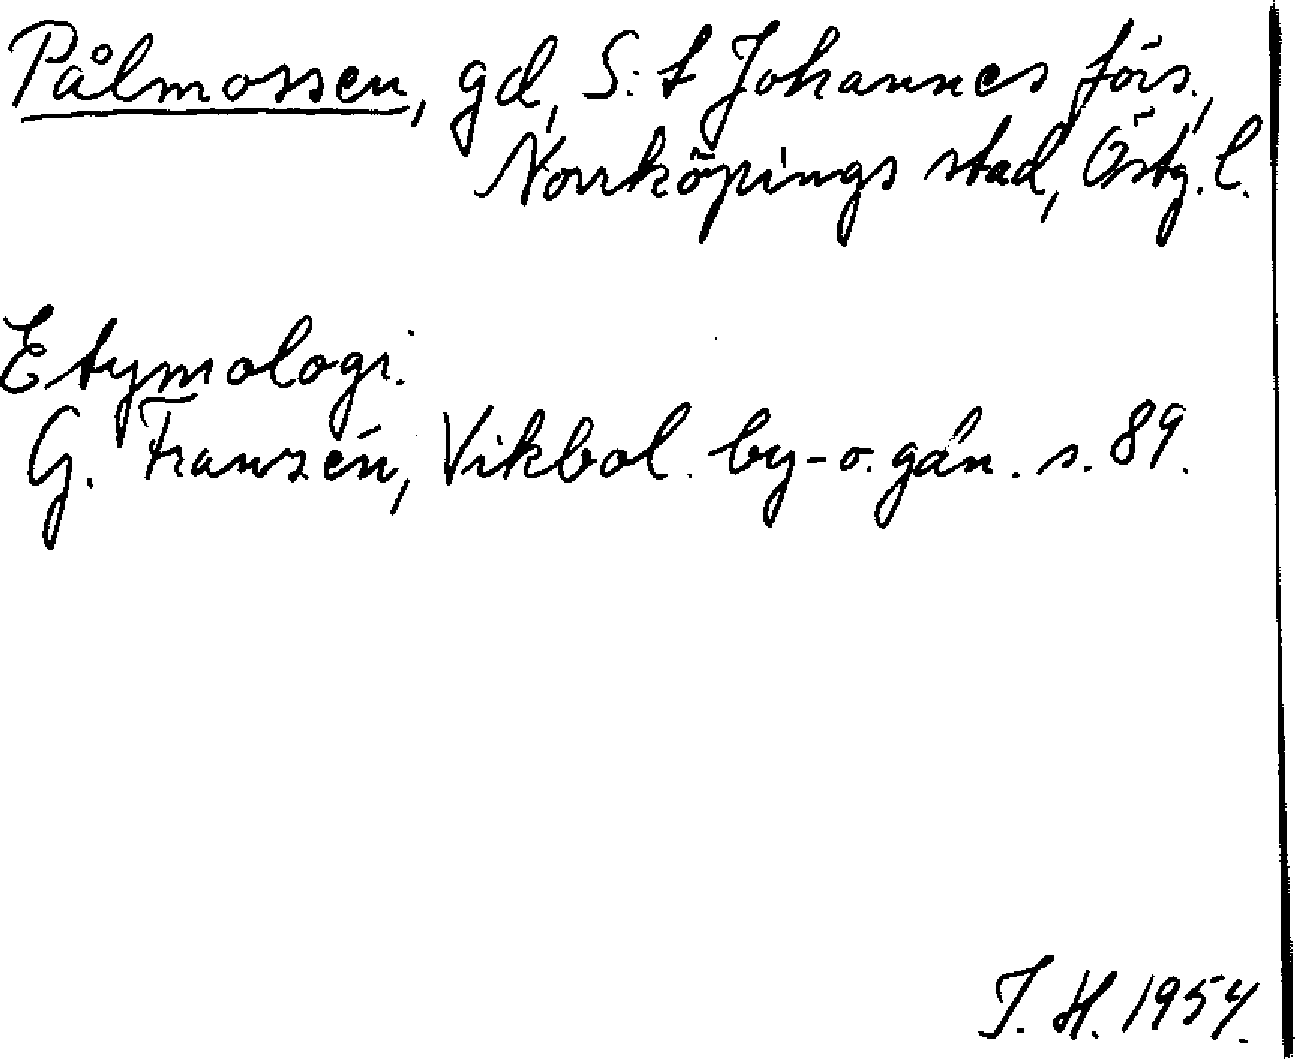 Pålmossen, gd, S:t Johannes förs.,
Norrköpings stad, Östg. l.
Etymologi.
G. Franzén, Vikbol. by- o. gån. s. 89.
J. H. 1954.